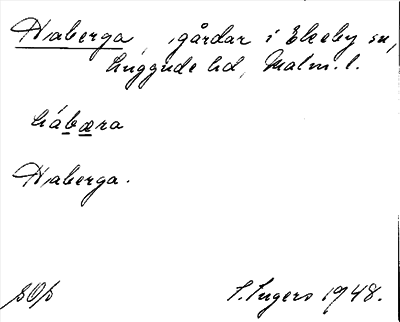 Haberga, gårdar i Ekeby sn,
Luggude hd, Malm. l.
håbæra
Haberga.
SOÞ
S. Ingers 1948.